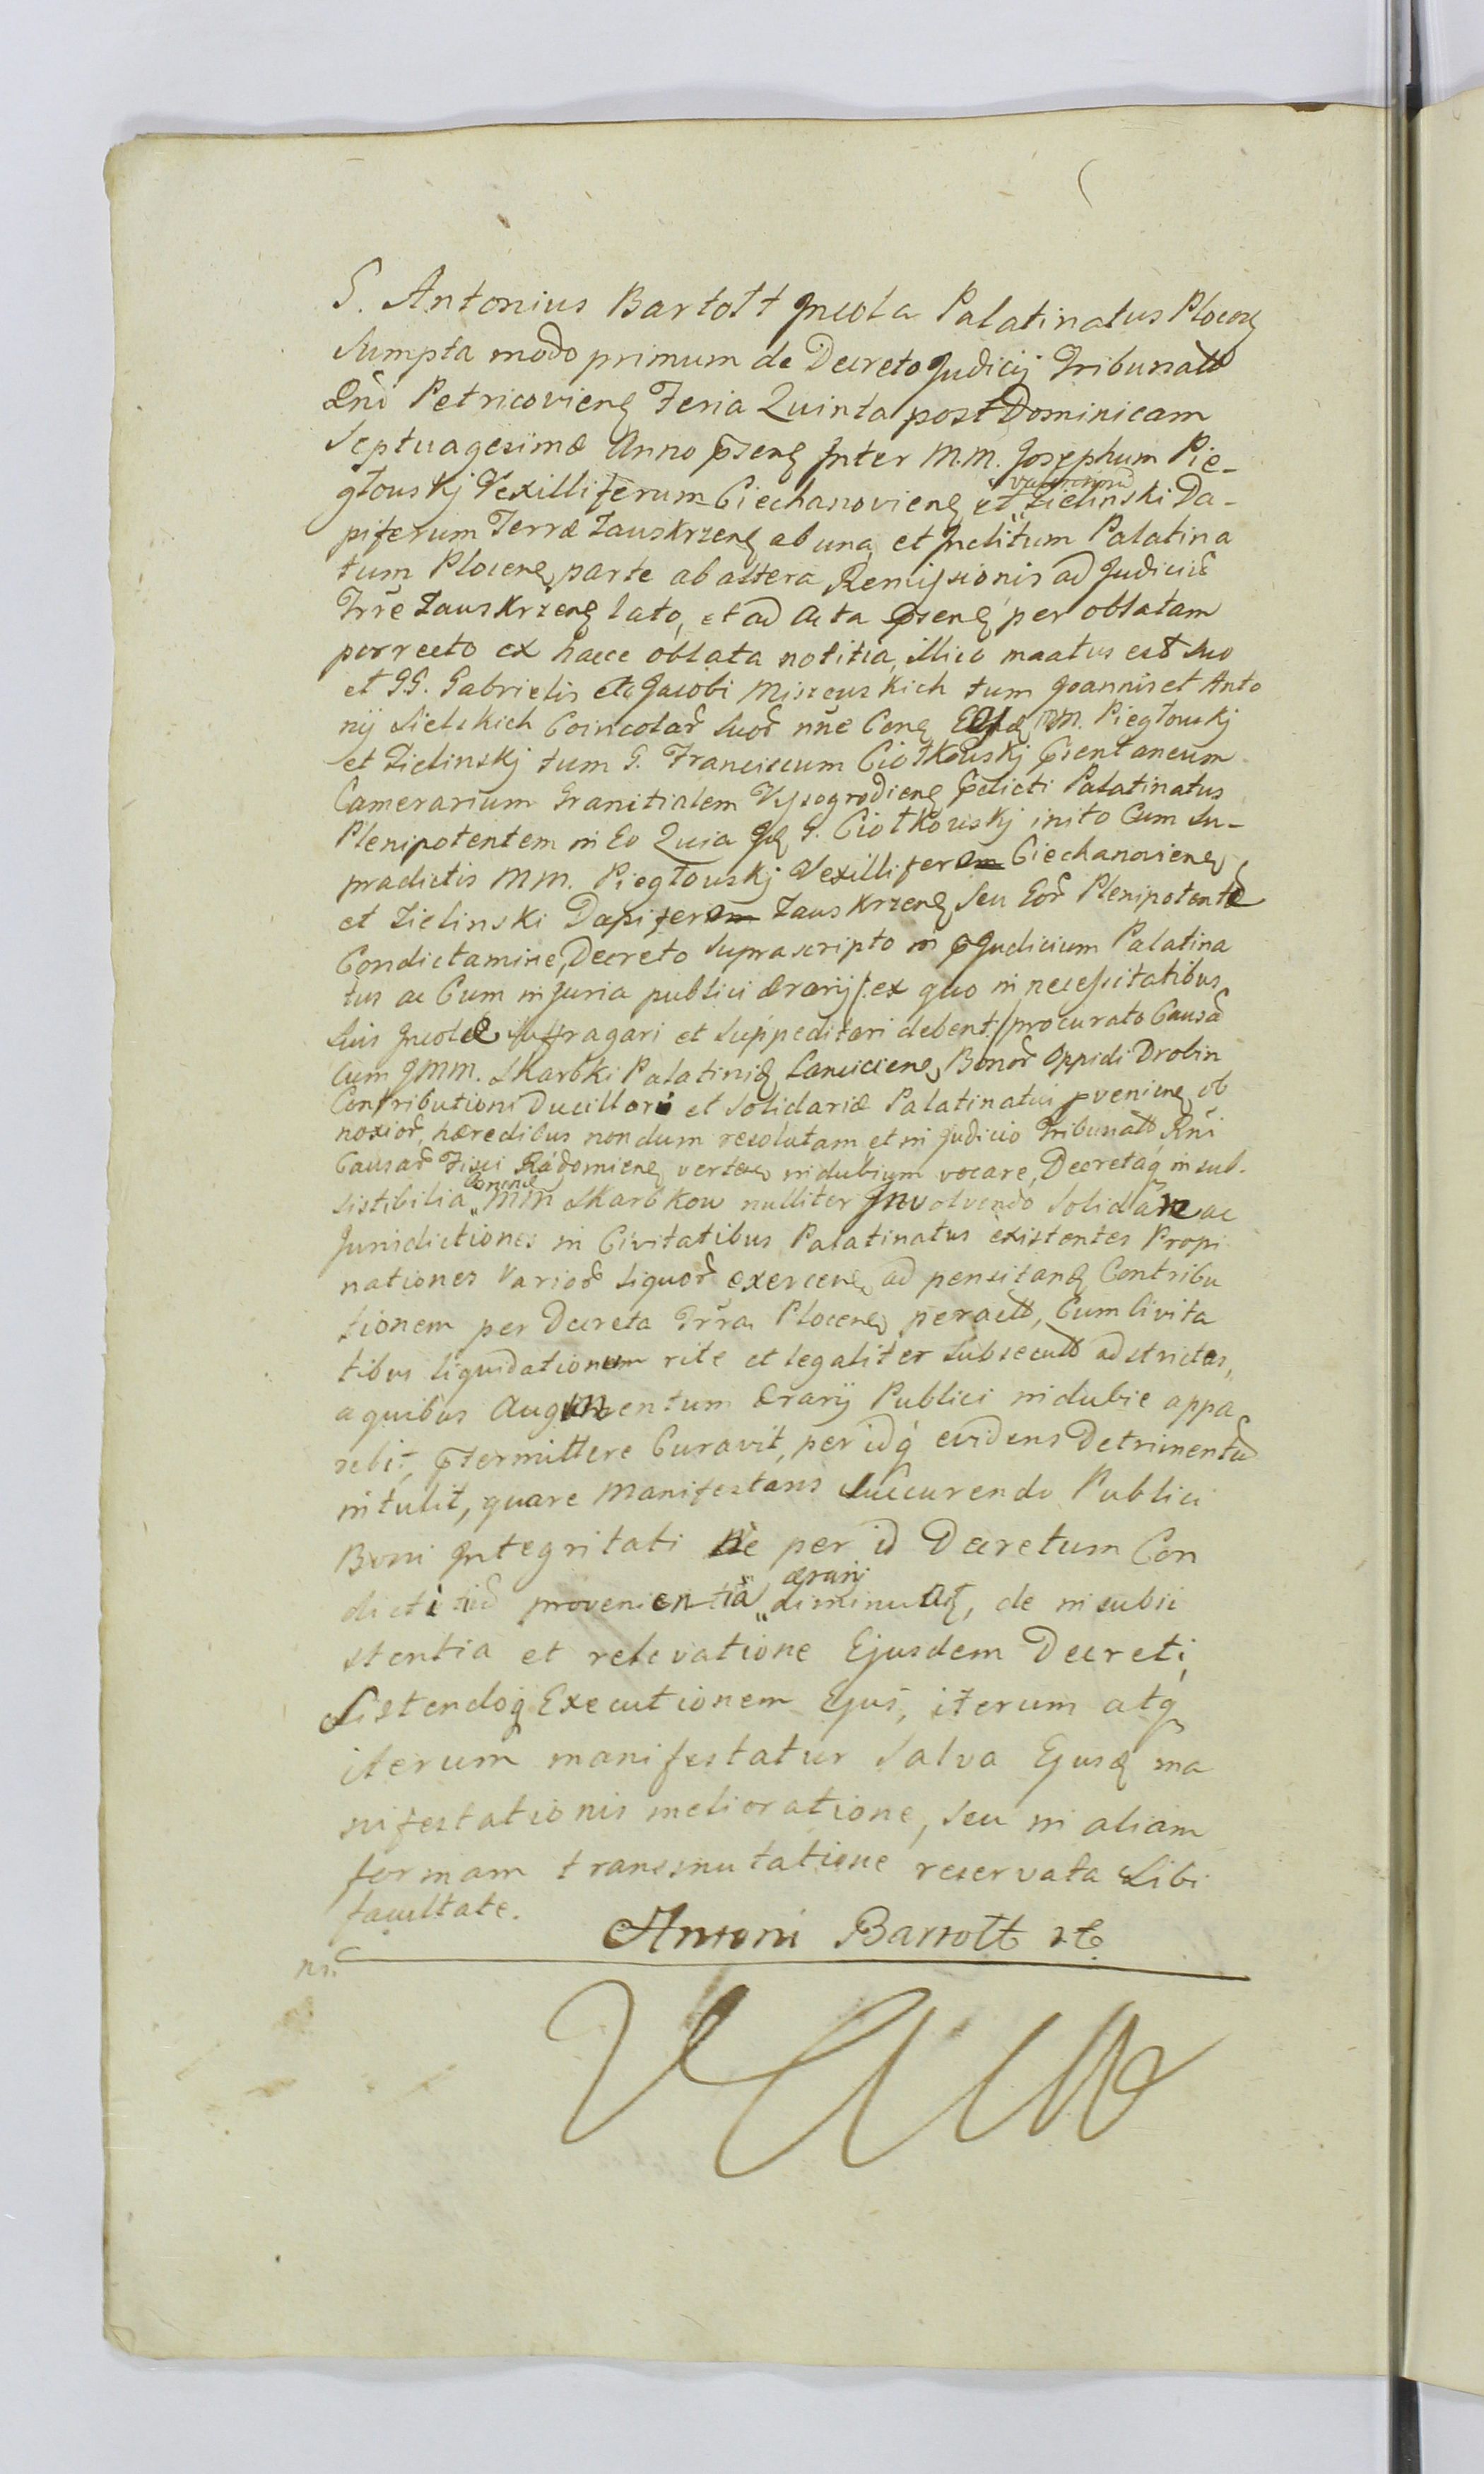 G. Antonius Bartolt Incola Palatinatus Plocen
Sumpta modo primum de Decreto Judicij Tribunalis
Rñi Petricovien Feria Quinta post Dominicam
Septuagesimæ Anno p̄sen Inter M.M. Josephum Pie-
głouskj Vexilliferum Ciechanovien et Zielinski Da-
piferum Terræ Zauskrzen ab una, et Inclitum Palatina
tum Plocen parte ab altera Remissionis ad Judiciũ
Trr̃e Zauskrzen lato, et ad Acta p̄sen per oblatam
porrecto ex hacce oblata notitia, illico motus est suo
et GG. Gabrielis et Jacobi Miszeuskich tum Joannis et Anto
nij Sielskich Coincolar̃ suor̃ nñe Con MM. Piegłouskj
et Zielinskj tum G. Franciscum Ciołkouskj p̄sentaneum
Camerarium Granitialem Vyssogrodien p̄dicti Palatinatus
Plenipotentem in Eo Quia G. Ciołkouskj inito Cum Su-
pradictis MM. Piegłouskj Vexillifer Ciechanovien
et Zielinski Dapifer Zauskrzen seu Eor̃ Plenipotente
Condictamine, Decreto suprascripto in p̄Judicium Palatina
tus ac Cum injuria publici Ærarij /: ex quo in necessitatibus
suis Incolæ suffragari et suppeditari debent :/ procurato Causã
Cum MM. Skarbki Palatini Lancicien Bonor̃ Oppidi Drobin
Contributioni Ducillari et Solidariæ Palatinatui p̄venien ob
noxior̃ hæredibus nondum resolutam et in Judicio Tribunals Rñi
Causar̃ Fisci Radomien verten in dubium vocare, Decretaq in sub-
sistibilia MM Skarbkow nulliter Involvendo Solidare ac
Jurisdictiones in Civitatibus Palatinatus existentes Propi
nationes Varior̃ Liquor̃ exercen ad pensitand Contribu
tionem per Decreta Trr̃a Plocen peracta, Cum Civita
tibus liquidationem rite et legaliter subsecuta adstrictas,
a quibus Augmentum Ærarij Publici indubie appa
rebit, p̄termittere Curavit, per idq evidens Detrimentũ
intulit, quare Manifestans succurendo Publici
Boni Integritati Ne per id Decretum Con
dictitiũ provenientia ærarij diminuat, de in subsi
stentia et relevatione Ejusdem Decreti,
Sistendoq Executionem Ejus, iterum atq
iterum manifestatur Salva Ejusd ma
nifestationis melioratione, seu in aliam
formam transmutatione reservata Sibi
facultate.
Antoni Bartolt